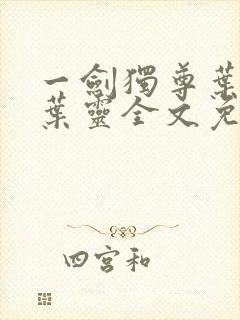 一劍獨尊葉
葉靈全文免
四宮和